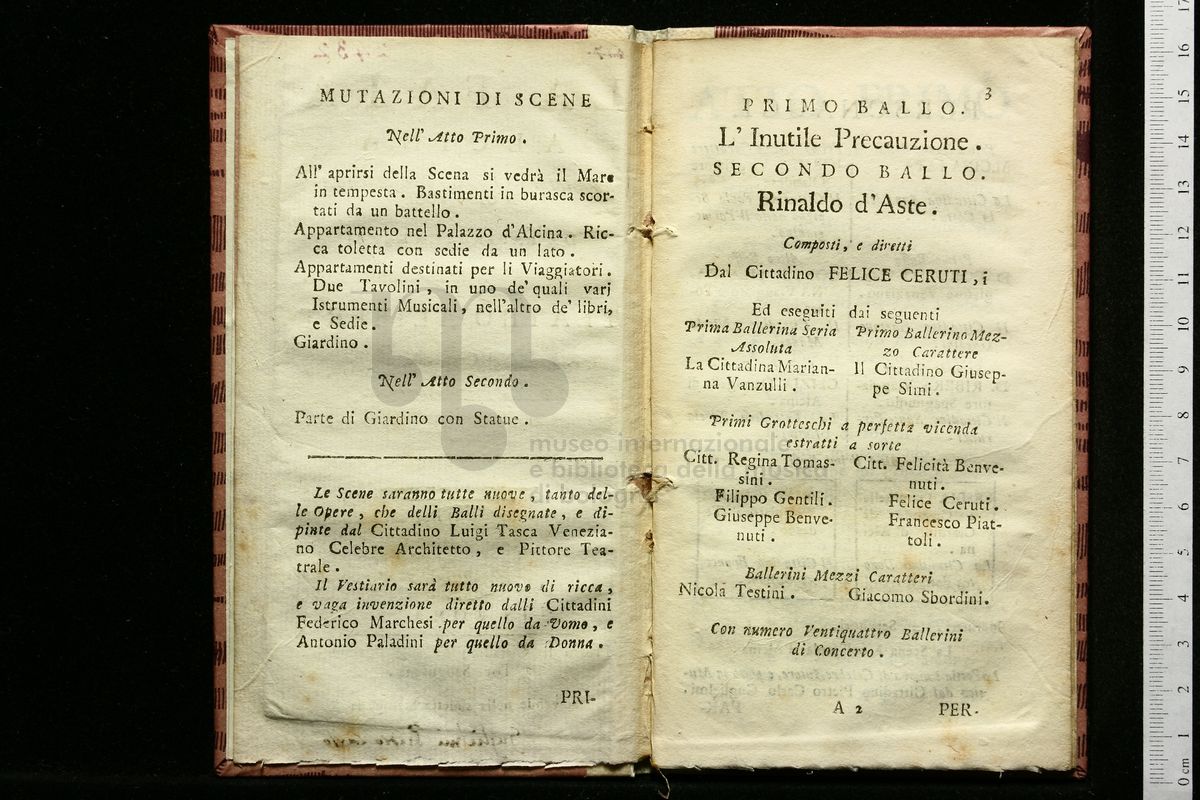 MUTAZIONI DI SCENE
Nell' Atto Primo.
All' aprirsi della Scena si vedrà il Mare
in tempesta. Bastimenti in burasca scor-
tati da un battello.
Appartamento nel Palazzo d'Alcina. Ric-
ca toletta con sedie da un lato.
Appartamenti destinati per li Viaggiatori.
Due Tavolini, in uno de' quali varj
Istrumenti Musicali, nell'altro de' libri,
e Sedie.
Giardino.
Nell' Atto Secondo.
Parte di Giardino con Statue.
Le Scene saranno tutte nuove, tanto del-
le Opere, che delli Balli disegnate, e di-
pinte dal Cittadino Luigi Tasca Venezia-
no Celebre Architetto, e Pittore Tea-
trale.
Il Vestiario sarà tutto nuovo di ricca,
e vaga invenzione diretto dalli Cittadini
Federico Marchesi per quello da Uomo, e
Antonio Paladini per quello da Donna.
PRI-
3
PRIMO BALLO.
L' Inutile Precauzione.
SECONDO BALLO.
Rinaldo d'Aste.
Composti, e diretti
Dal Cittadino FELICE CERUTI, i
Ed eseguiti dai seguenti
Prima Ballerina Seria
Assoluta
La Cittadina Marian-
na Vanzulli.
Primo Ballerino Mez-
zo Carattere
Il Cittadino Giusep-
pe Simi.
Primi Grotteschi a perfetta vicenda
estratti a sorte
Citt. Regina Tomas-
sini.
Filippo Gentili.
Giuseppe Benve-
nuti.
Citt. Felicità Benve-
nuti.
Felice Ceruti.
Francesco Piat-
toli.
Ballerini Mezzi Caratteri
Nicola Testini.
Giacomo Sbordini.
Con numero Ventiquattro Ballerini
di Concerto.
A 2
PER-
museo internazionale
e biblioteca della musica
di bologna
0 cm
1
2
3
4
5
6
7
8
9
10
11
12
13
14
15
16
17